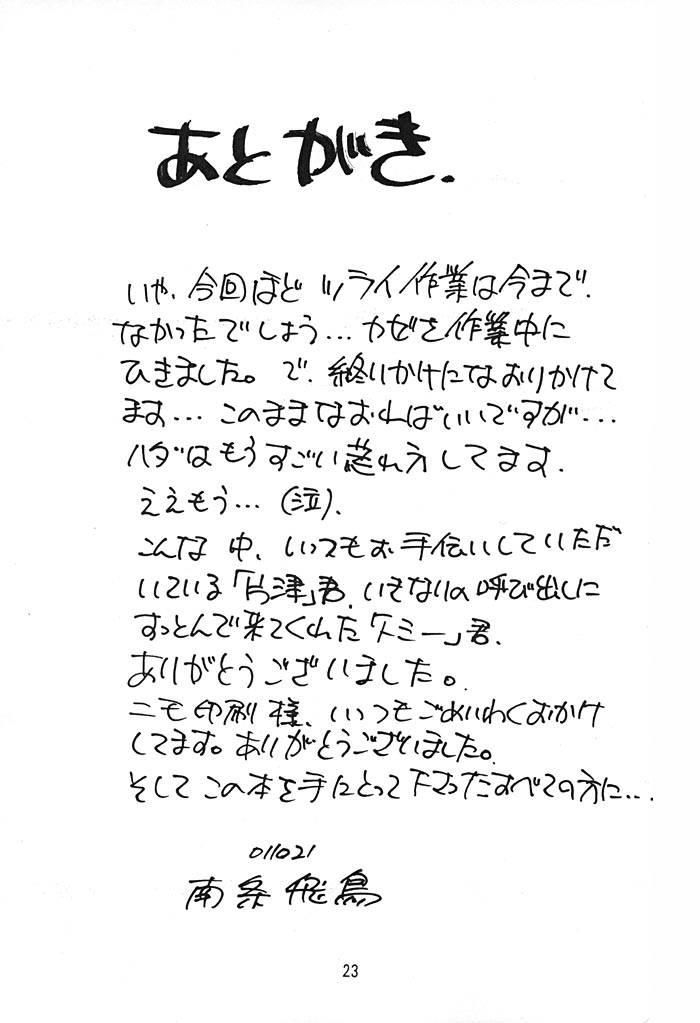 あとがき.
いや、今回ほど ツライ作業は今まで、
なかったでしょう… カゼを作業中に
ひきました。で、終りかけになおりかけて
ます… このままなおればいいですが…
ハダはもうすごい荒れ方してます.
ええもう… (泣).
こんな中、いつもお手伝いしていただ
いている「片津」君、いきなりの呼び出しに
すっとんで来てくれた「クミー」君、
ありがとうございました。
ニモ印刷様、いつもごめいわくおかけ
してます。ありがとうございました。
そして この本を手にとって下さったすべての方に…．
011021
南条飛鳥
23